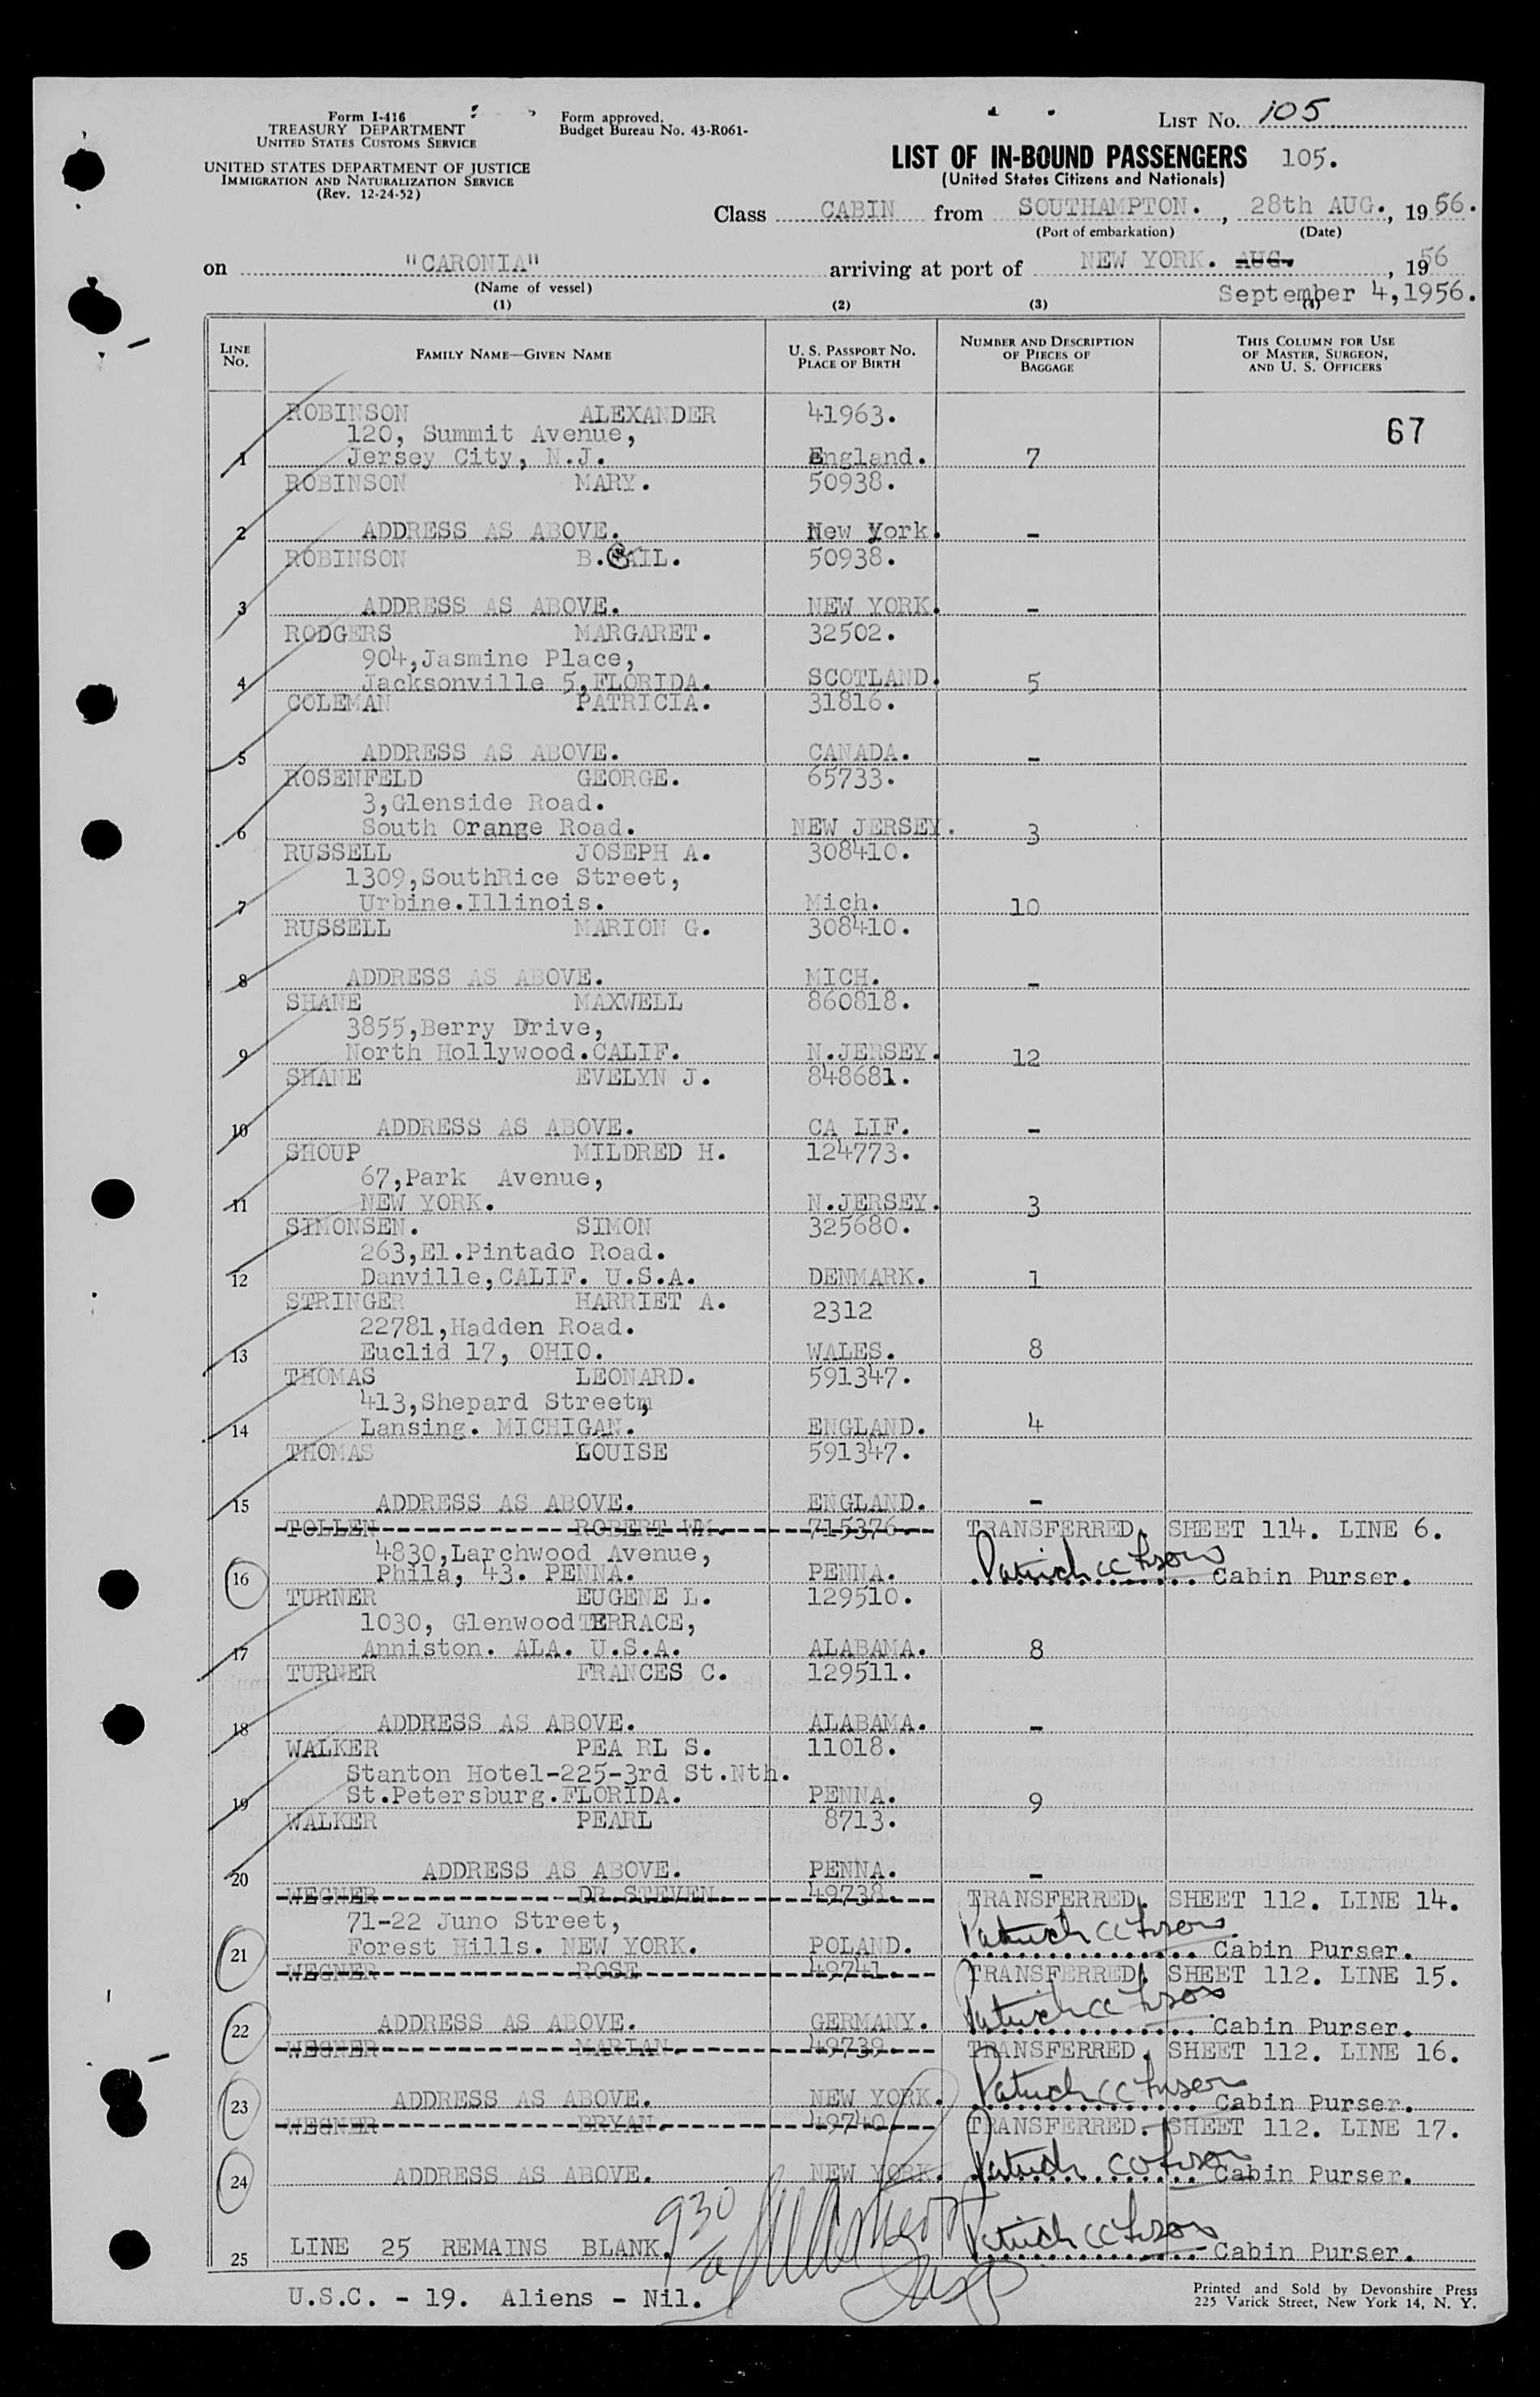 Form I-416
TREASURY DEPARTMENT
UNITED STATES CUSTOMS SERVICE
UNITED STATES DEPARTMENT OF JUSTICE
IMMIGRATION AND NATURALIZATION SERVICE
(Rev. 12-24-52)
Form approved.
Budget Bureau No. 43-R061-
LIST NO. 105
LIST OF IN-BOUND PASSENGERS 105.
(United States Citizens and Nationals)
Class CABIN from SOUTHAMPTON., 28th AUG., 1956.
(Port of embarkation) (Date)
on "CARONIA" arriving at port of NEW YORK. AUG., 1956
(Name of vessel) September 4,1956.
(1) (2) (3) (4)
LINE NO. FAMILY NAME—GIVEN NAME U. S. PASSPORT NO. PLACE OF BIRTH NUMBER AND DESCRIPTION OF PIECES OF BAGGAGE THIS COLUMN FOR USE OF MASTER, SURGEON, AND U. S. OFFICERS
ROBINSON ALEXANDER 41963.
120, Summit Avenue, 67
1 Jersey City, N.J. England. 7
ROBINSON MARY. 50938.
2 ADDRESS AS ABOVE. New York. -
ROBINSON B.GAIL. 50938.
3 ADDRESS AS ABOVE. NEW YORK. -
RODGERS MARGARET. 32502.
904,Jasmine Place,
4 Jacksonville 5,FLORIDA. SCOTLAND. 5
COLEMAN PATRICIA. 31816.
5 ADDRESS AS ABOVE. CANADA. -
ROSENFELD GEORGE. 65733.
3,Glenside Road.
6 South Orange Road. NEW JERSEY. 3
RUSSELL JOSEPH A. 308410.
1309,SouthRice Street,
7 Urbine.Illinois. Mich. 10
RUSSELL MARION G. 308410.
8 ADDRESS AS ABOVE. MICH. -
SHANE MAXWELL 860818.
3855,Berry Drive,
9 North Hollywood.CALIF. N.JERSEY. 12
SHANE EVELYN J. 848681.
10 ADDRESS AS ABOVE. CA LIF. -
SHOUP MILDRED H. 124773.
67,Park Avenue,
11 NEW YORK. N.JERSEY. 3
SIMONSEN. SIMON 325680.
263,El.Pintado Road.
12 Danville,CALIF. U.S.A. DENMARK. 1
STRINGER HARRIET A. 2312
22781,Hadden Road.
13 Euclid 17, OHIO. WALES. 8
THOMAS LEONARD. 591347.
413,Shepard Street,
14 Lansing. MICHIGAN. ENGLAND. 4
THOMAS LOUISE 591347.
15 ADDRESS AS ABOVE. ENGLAND. -
TOLLEN ROBERT WM. 715376. TRANSFERRED. SHEET 114. LINE 6.
4830,Larchwood Avenue,
16 Phila, 43. PENNA. PENNA. Cabin Purser.
TURNER EUGENE L. 129510.
1030, GlenwoodTERRACE,
17 Anniston. ALA. U.S.A. ALABAMA. 8
TURNER FRANCES C. 129511.
18 ADDRESS AS ABOVE. ALABAMA. -
WALKER PEA RL S. 11018.
Stanton Hotel-225-3rd St.Nth.
19 St.Petersburg.FLORIDA. PENNA. 9
WALKER PEARL 8713.
20 ADDRESS AS ABOVE. PENNA. -
WEGNER DR STEVEN. 49738. TRANSFERRED. SHEET 112. LINE 14.
71-22 Juno Street,
21 Forest Hills. NEW YORK. POLAND. Cabin Purser.
WEGNER ROSE 49741. TRANSFERRED. SHEET 112. LINE 15.
22 ADDRESS AS ABOVE. GERMANY. Cabin Purser.
WEGNER MARIAN. 49739. TRANSFERRED. SHEET 112. LINE 16.
23 ADDRESS AS ABOVE. NEW YORK. Cabin Purser.
WEGNER BRYAN. 49740. TRANSFERRED. SHEET 112. LINE 17.
24 ADDRESS AS ABOVE. NEW YORK. Cabin Purser.
930
25 LINE 25 REMAINS BLANK. Cabin Purser.
U.S.C. - 19. Aliens - Nil.
Printed and Sold by Devonshire Press
225 Varick Street, New York 14, N. Y.